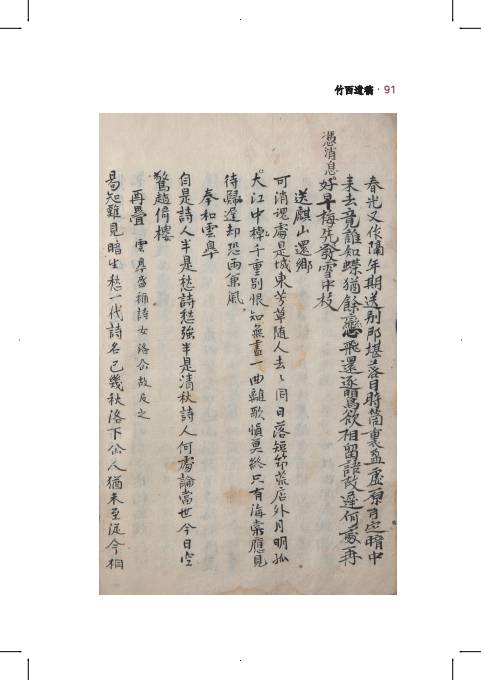 竹西遺稿 · 91
春光又作隔年期送別那堪落日時筒裏盈虛原有定暗中
來去竟誰知蝶猶餘戀飛還逐鶯欲相留語故遲何處再
憑消息好早梅先發雪中枝
送麒山還鄉
可消魂處是城東芳草隨人去〻同日落短筇荒店外月明孤
大江中樽千重別恨知無盡一曲離歌愼莫終只有海棠應見
待歸遲却恐雨兼風
奉和雲皐
自是詩人半是愁詩愁強半是清秋詩人何處論當世今日空
驚趙倚樓
再疊 雲皐盛稱詩女洛公故及之
曷知難見暗生愁一代詩名已幾秋洛下公人猶未至從今桐